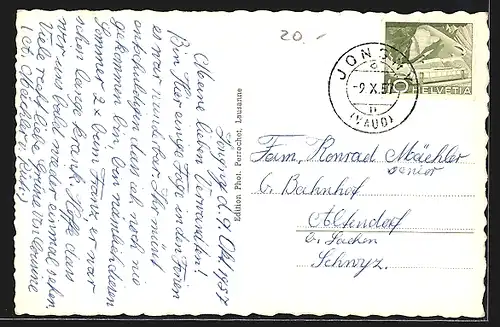 20.-
JONGNY
a
-9.X.57
(VAUD)
10
HELVETIA
Jongny d. 9. Okt. 1957
Meine lieben Verwandten!
Bin hier einige Tage in den Ferien
es war wunderbar. Ihr müsst
entschuldigen dass ich noch nie
gekommen bin, bin nämlich diesen
Sommer 2x beim Franz er war
schon lange krank. Hoffe dass
wir uns bald wieder einmal sehen.
Viele recht liebe Grüsse von Eurem
Edition Phot. Perrochet, Lausanne
Fam. Konrad Mächler
senior
b. Bahnhof
Altendorf
bei Lachen
Schwyz.